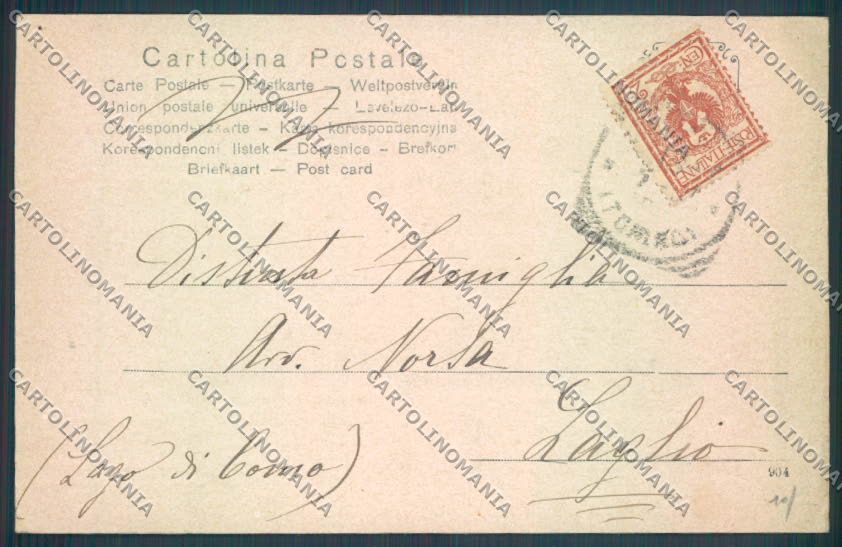 Cartolina Postale
Carte Postale — Postkarte — Weltpostverein
Union postale universelle — Levelező-Lap
Correspondenzkarte — Karta korespondencyjna
Korespondencni listek — Dopisnice — Brefkort
Briefkaart — Post card
POSTE ITALIANE
CEN
Distinta Famiglia
Avv. Norsa
Laglio
(Lago di Como)
904
10/
CARTOLINOMANIA